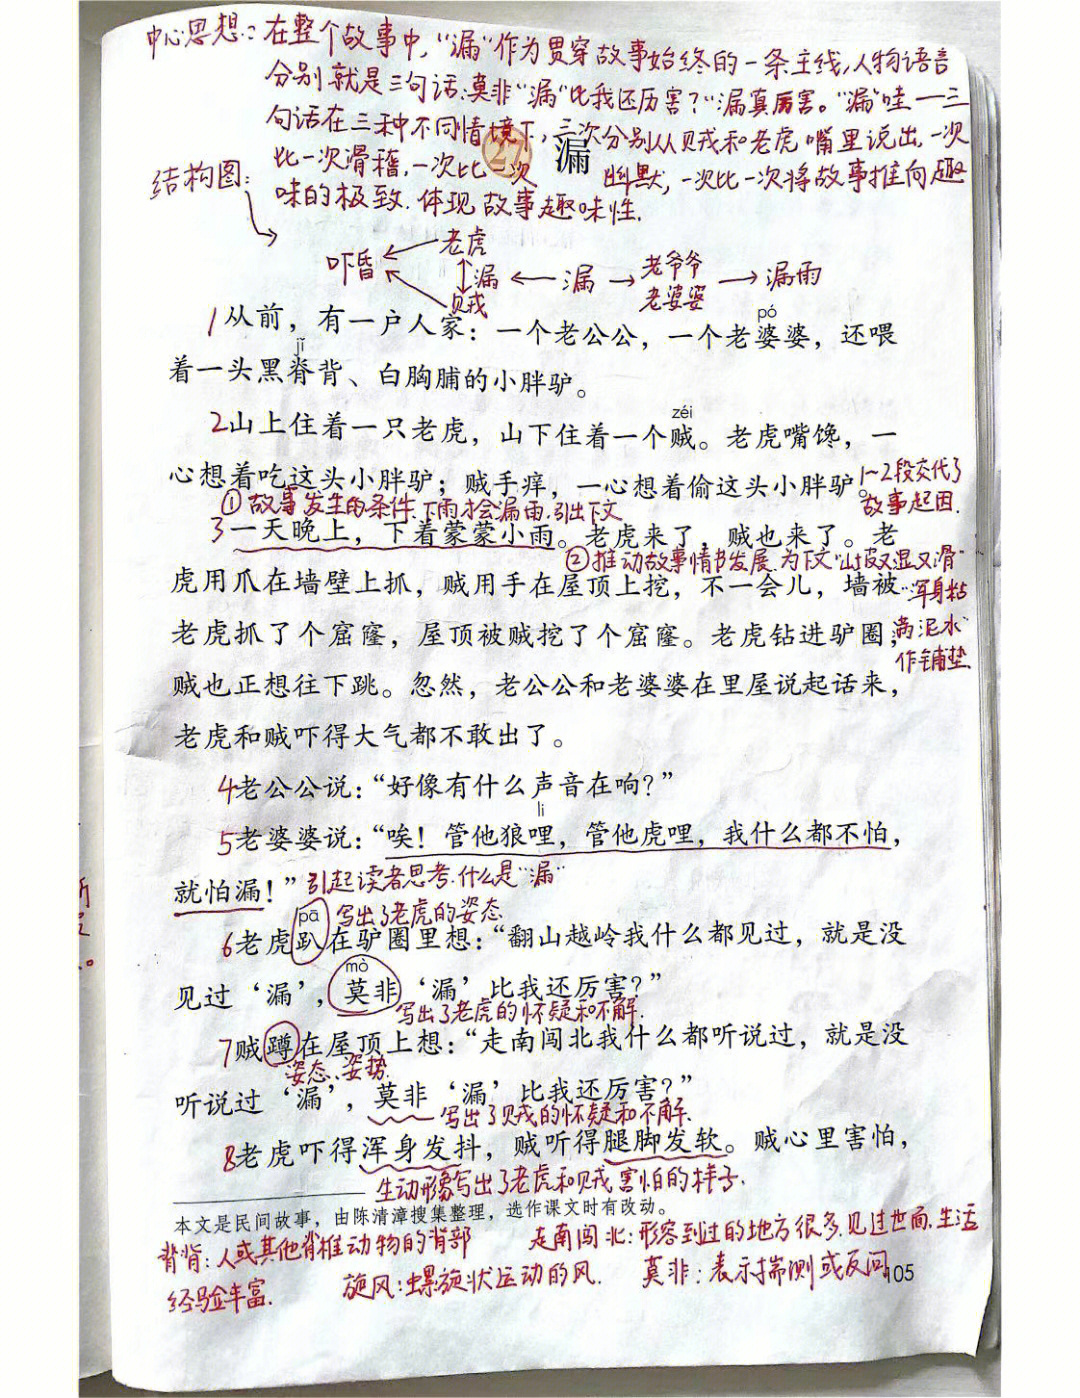 中心思想：在整个故事中，“漏”作为贯穿故事始终的一条主线，人物语言
分别就是三句话：莫非“漏”比我还厉害？“漏真厉害。“漏”哇——三
句话在三种不同情境下，三次分别从贼和老虎嘴里说出，一次
比一次滑稽，一次比一次幽默，一次比一次将故事推向趣
味的极致．体现故事趣味性．
27 漏
结构图：
老虎
吓昏 漏 ← 漏 → 老爷爷 老婆婆 → 漏雨
贼
pó
1从前，有一户人家：一个老公公，一个老婆婆，还喂
jǐ
着一头黑脊背、白胸脯的小胖驴。
zéi
2山上住着一只老虎，山下住着一个贼。老虎嘴馋，一
心想着吃这头小胖驴；贼手痒，一心想着偷这头小胖驴。
1~2段交代了
故事起因．
①故事发生的条件．下雨才会漏雨．引出下文
3一天晚上，下着蒙蒙小雨。老虎来了，贼也来了。老
②推动故事情节发展．为下文“山坡又湿又滑”
浑身粘
满泥水”
作铺垫
虎用爪在墙壁上抓，贼用手在屋顶上挖，不一会儿，墙被
老虎抓了个窟窿，屋顶被贼挖了个窟窿。老虎钻进驴圈，
贼也正想往下跳。忽然，老公公和老婆婆在里屋说起话来，
老虎和贼吓得大气都不敢出了。
4老公公说：“好像有什么声音在响？”
li
5老婆婆说：“唉！管他狼哩，管他虎哩，我什么都不怕，
就怕漏！” 引起读者思考．什么是“漏”
pā 写出了老虎的姿态．
6老虎趴在驴圈里想：“翻山越岭我什么都见过，就是没
mò
见过‘漏’，莫非‘漏’比我还厉害？”
写出了老虎的怀疑和不解．
7贼蹲在屋顶上想：“走南闯北我什么都听说过，就是没
姿态、姿势．
听说过‘漏’，莫非‘漏’比我还厉害？”
写出了贼的怀疑和不解．
8老虎吓得浑身发抖，贼听得腿脚发软。贼心里害怕，
生动形象写出了老虎和贼害怕的样子．
本文是民间故事，由陈清漳搜集整理，选作课文时有改动。
脊背：人或其他脊椎动物的背部 走南闯北：形容到过的地方很多．见过世面．生活
经验丰富． 旋风：螺旋状运动的风． 莫非：表示揣测或反问
105